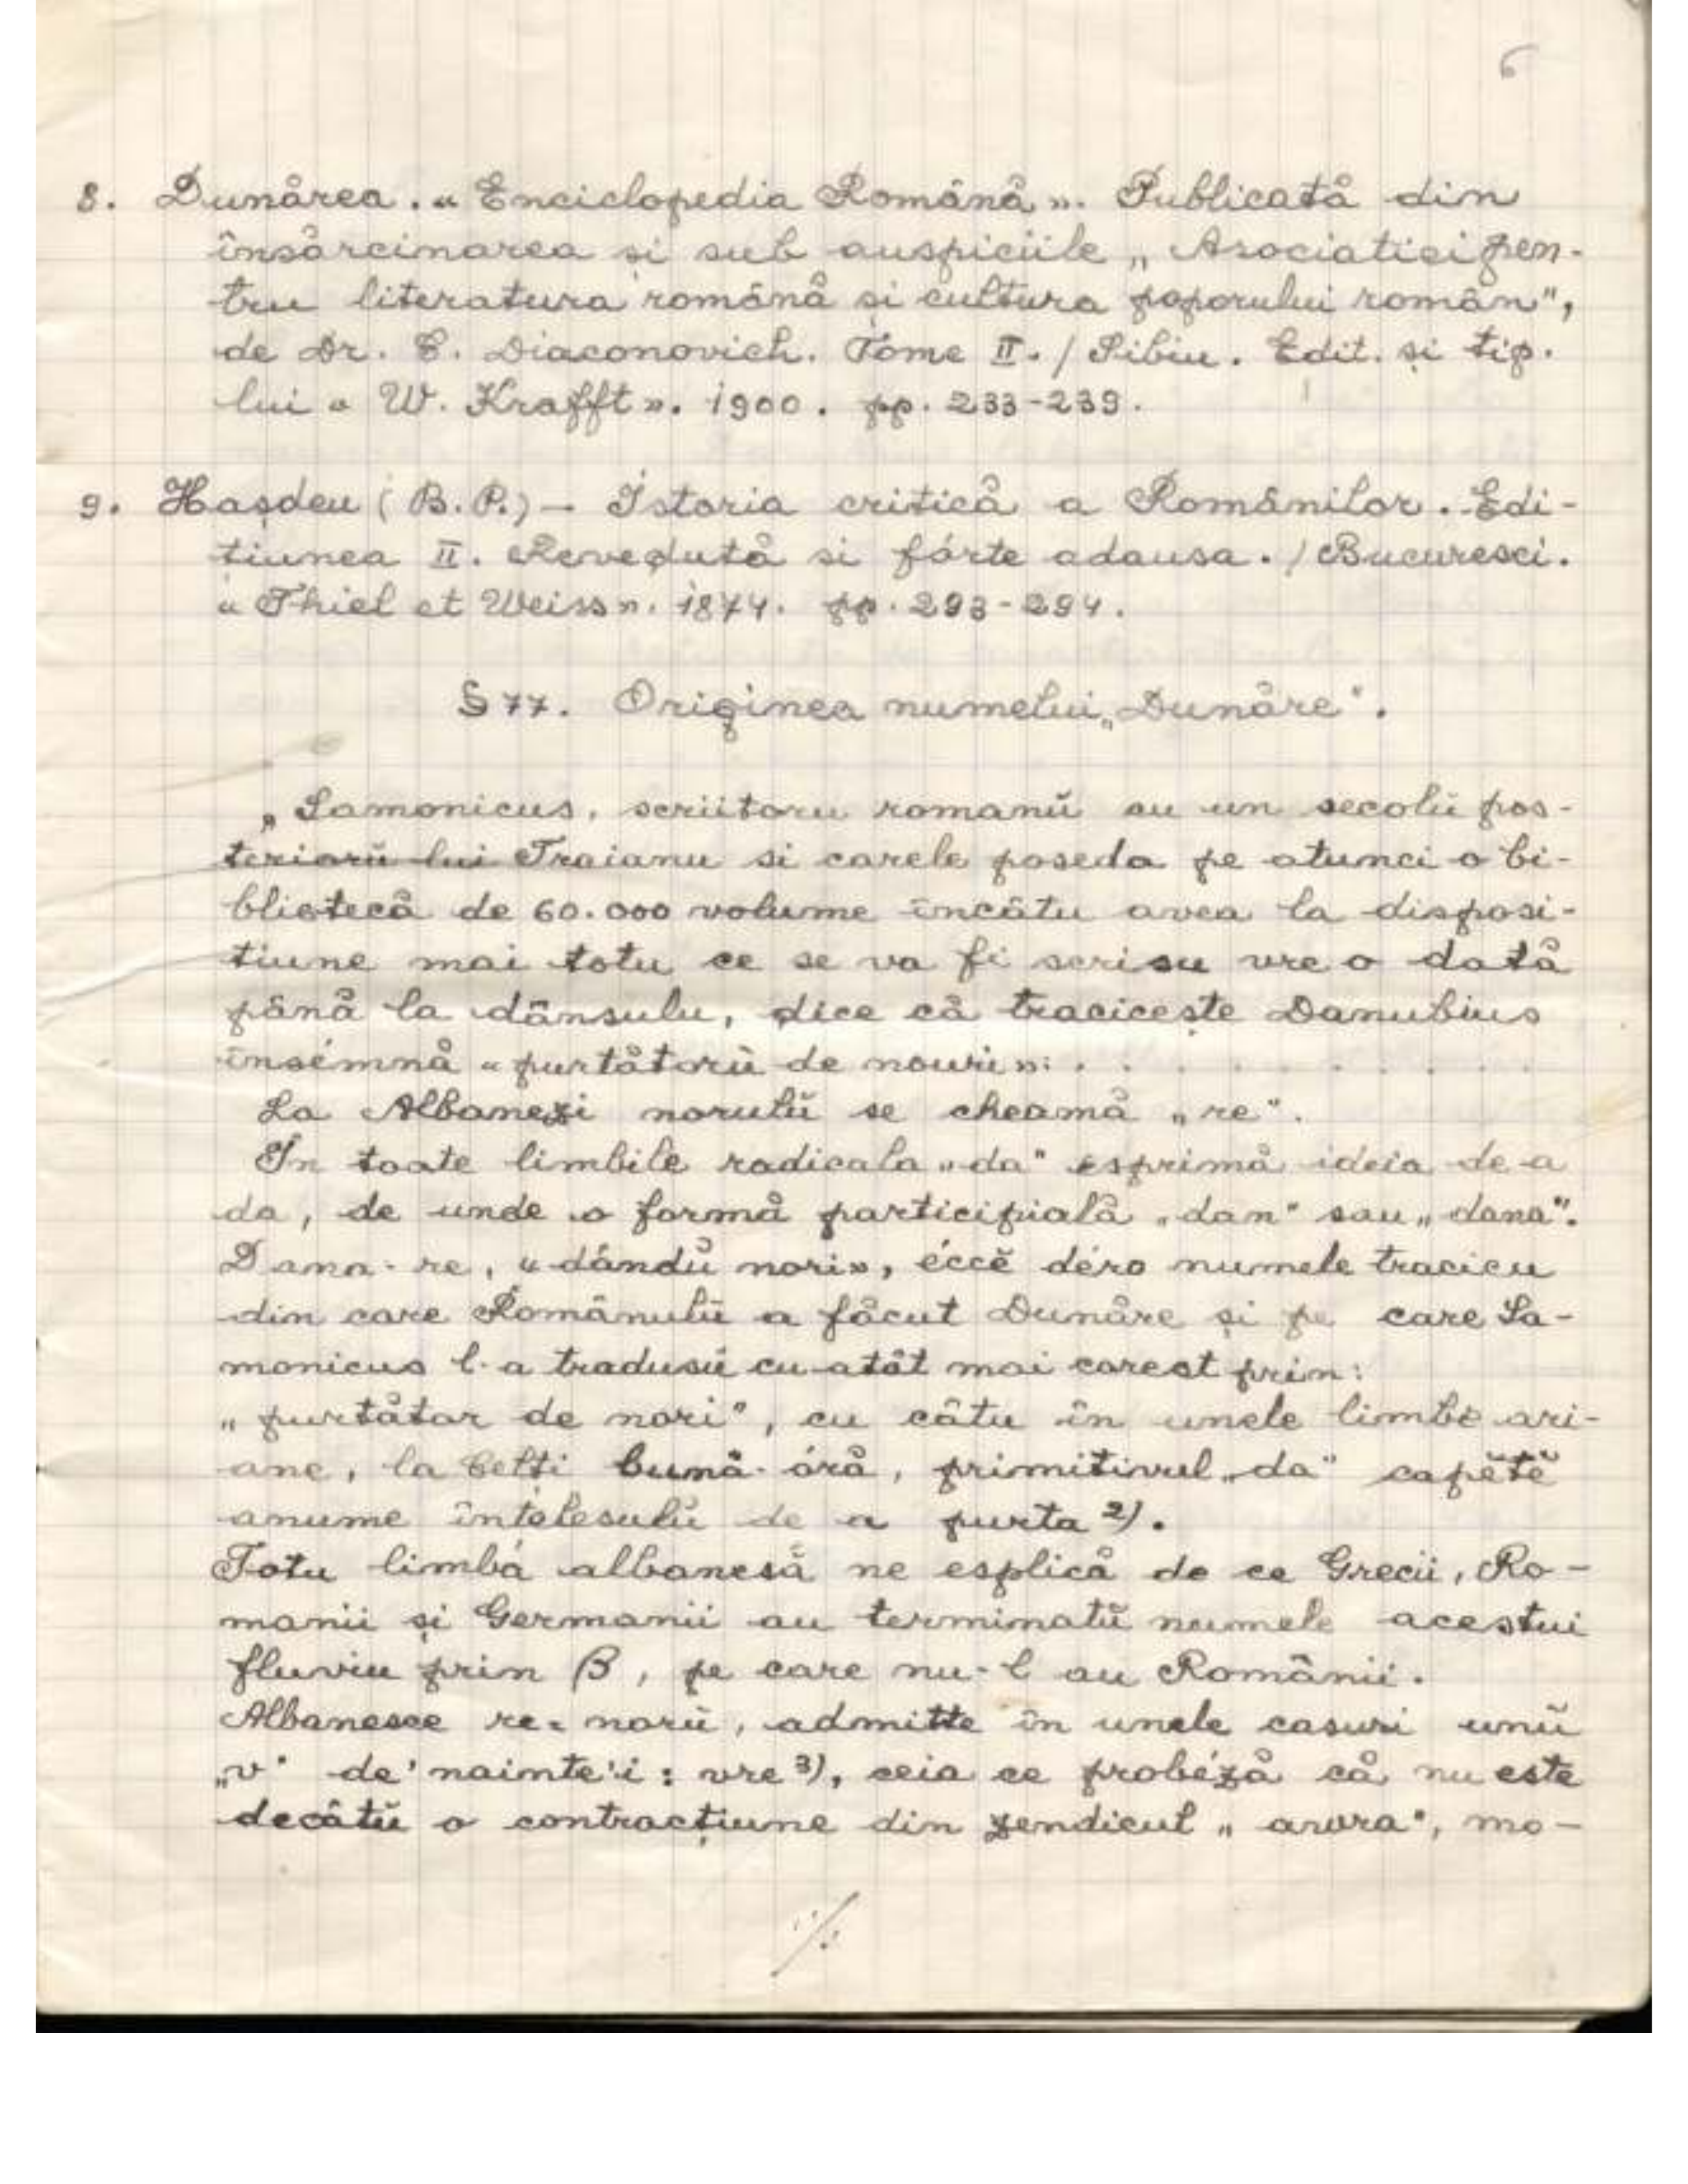 6
8. Dunărea. « Enciclopedia Română ». Publicată din
însărcinarea și sub auspiciile „ Asociatiei pen-
tru literatura română și cultura poporului român",
de Dr. C. Diaconovich. Tome II. / Sibiu. Edit. și tip.
lui « W. Krafft ». 1900. pp. 233-239.
9. Hașdeu ( B. P.) — Istoria critică a Românilor. Edi-
tiunea II. Revedută si fórte adausa. / Bucuresci.
« Thiel et Weiss ». 1874. pp. 293-294.
§ 77. Originea numelui „Dunăre".
„ Samonicus, scriitoru romanŭ cu un secolŭ pos-
teriorŭ lui Traianu si carele poseda pe atunci o bi-
bliotecă de 60.000 volume încâtu avea la disposi-
tiune mai totu ce se va fi scrisu vre o dată
până la dânsulu, dice că traciceşte Danubius
însémnă « purtătorŭ de nouri »: . . . . . . . . .
La Albanezi norulŭ se cheamă „re".
In toate limbile radicala „da" esprimă ideia de a
da, de unde o formă participială „dan" sau „dana".
Dana-re, « dândŭ nori », éccĕ déro numele tracicu
din care Românulŭ a făcut Dunăre și pe care Sa-
monicus l-a tradusŭ cu atât mai corect prin:
„ purtător de nori", cu câtu în unele limbe ari-
ane, la Celți bună-óră, primitivul „da" capĕtĕ
anume înțelesulŭ de a purta 2).
Totu limbá albanesă ne esplică de ce Grecii, Ro-
manii și Germanii au terminatŭ numele acestui
fluviu prin B, pe care nu-l au Românii.
Albanesce re = norŭ, admitte în unele casuri unŭ
„v" de'nainte'i: vre 3), ceia ce probéză că nu este
decâtŭ o contracțiune din zendicul „ awra", mo-